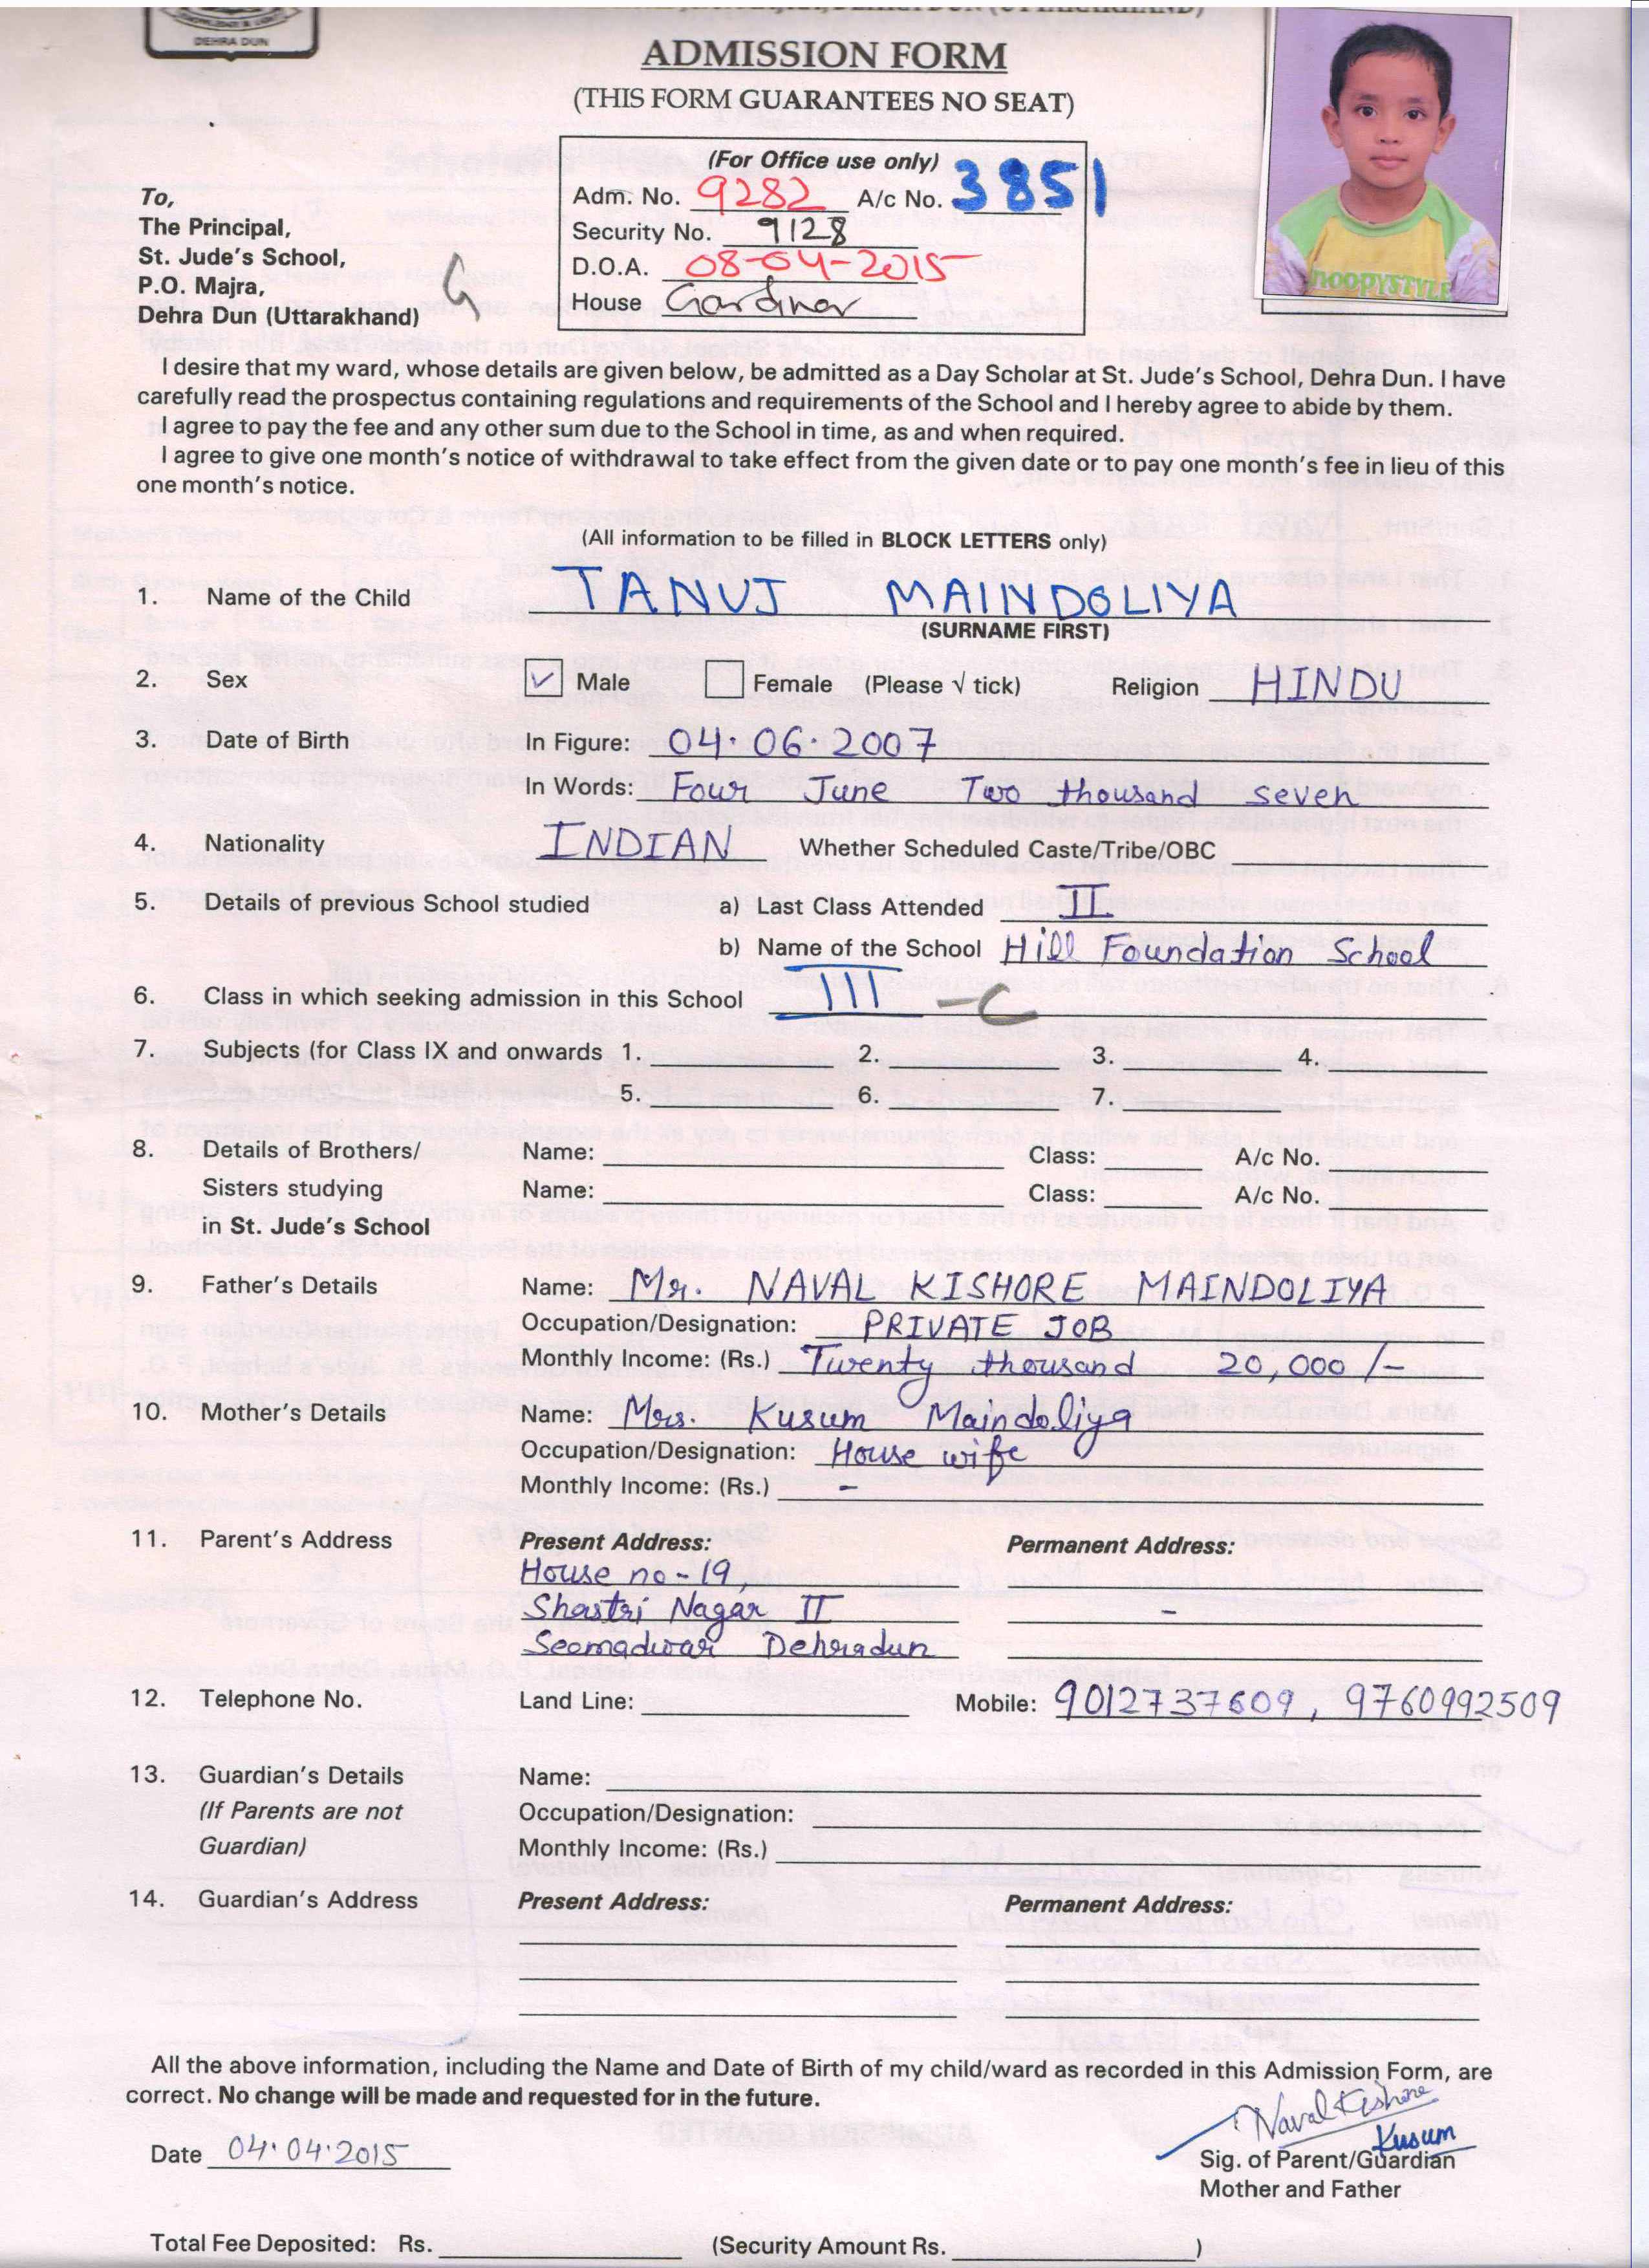 DEHRA DUN
ADMISSION FORM
(THIS FORM GUARANTEES NO SEAT)
(For Office use only)
Adm. No. 9282 A/c No. 3851
Security No. 9128
D.O.A. 08-04-2015
House Gardner
To,
The Principal,
St. Jude's School,
P.O. Majra,
Dehra Dun (Uttarakhand)
G
NOOPYSTYLE
I desire that my ward, whose details are given below, be admitted as a Day Scholar at St. Jude's School, Dehra Dun. I have
carefully read the prospectus containing regulations and requirements of the School and I hereby agree to abide by them.
I agree to pay the fee and any other sum due to the School in time, as and when required.
I agree to give one month's notice of withdrawal to take effect from the given date or to pay one month's fee in lieu of this
one month's notice.
(All information to be filled in BLOCK LETTERS only)
1. Name of the Child TANUJ MAINDOLIYA
(SURNAME FIRST)
2. Sex ✓ Male Female (Please √ tick) Religion HINDU
3. Date of Birth In Figure: 04.06.2007
In Words: Four June Two thousand seven
4. Nationality INDIAN Whether Scheduled Caste/Tribe/OBC
5. Details of previous School studied a) Last Class Attended II
b) Name of the School Hill Foundation School
6. Class in which seeking admission in this School III -C
7. Subjects (for Class IX and onwards 1. 2. 3. 4.
5. 6. 7.
8. Details of Brothers/ Name: Class: A/c No.
Sisters studying Name: Class: A/c No.
in St. Jude's School
9. Father's Details Name: Mr. NAVAL KISHORE MAINDOLIYA
Occupation/Designation: PRIVATE JOB
Monthly Income: (Rs.) Twenty thousand 20,000 /-
10. Mother's Details Name: Mrs. Kusum Maindoliya
Occupation/Designation: House wife
Monthly Income: (Rs.) -
11. Parent's Address Present Address: Permanent Address:
House no-19,
Shastri Nagar II -
Seemadwar Dehradun
12. Telephone No. Land Line: Mobile: 9012737609, 9760992509
13. Guardian's Details Name:
(If Parents are not Occupation/Designation:
Guardian) Monthly Income: (Rs.)
14. Guardian's Address Present Address: Permanent Address:
All the above information, including the Name and Date of Birth of my child/ward as recorded in this Admission Form, are
correct. No change will be made and requested for in the future.
Naval Kishore
Kusum
Date 04.04.2015 Sig. of Parent/Guardian
Mother and Father
Total Fee Deposited: Rs. (Security Amount Rs. )